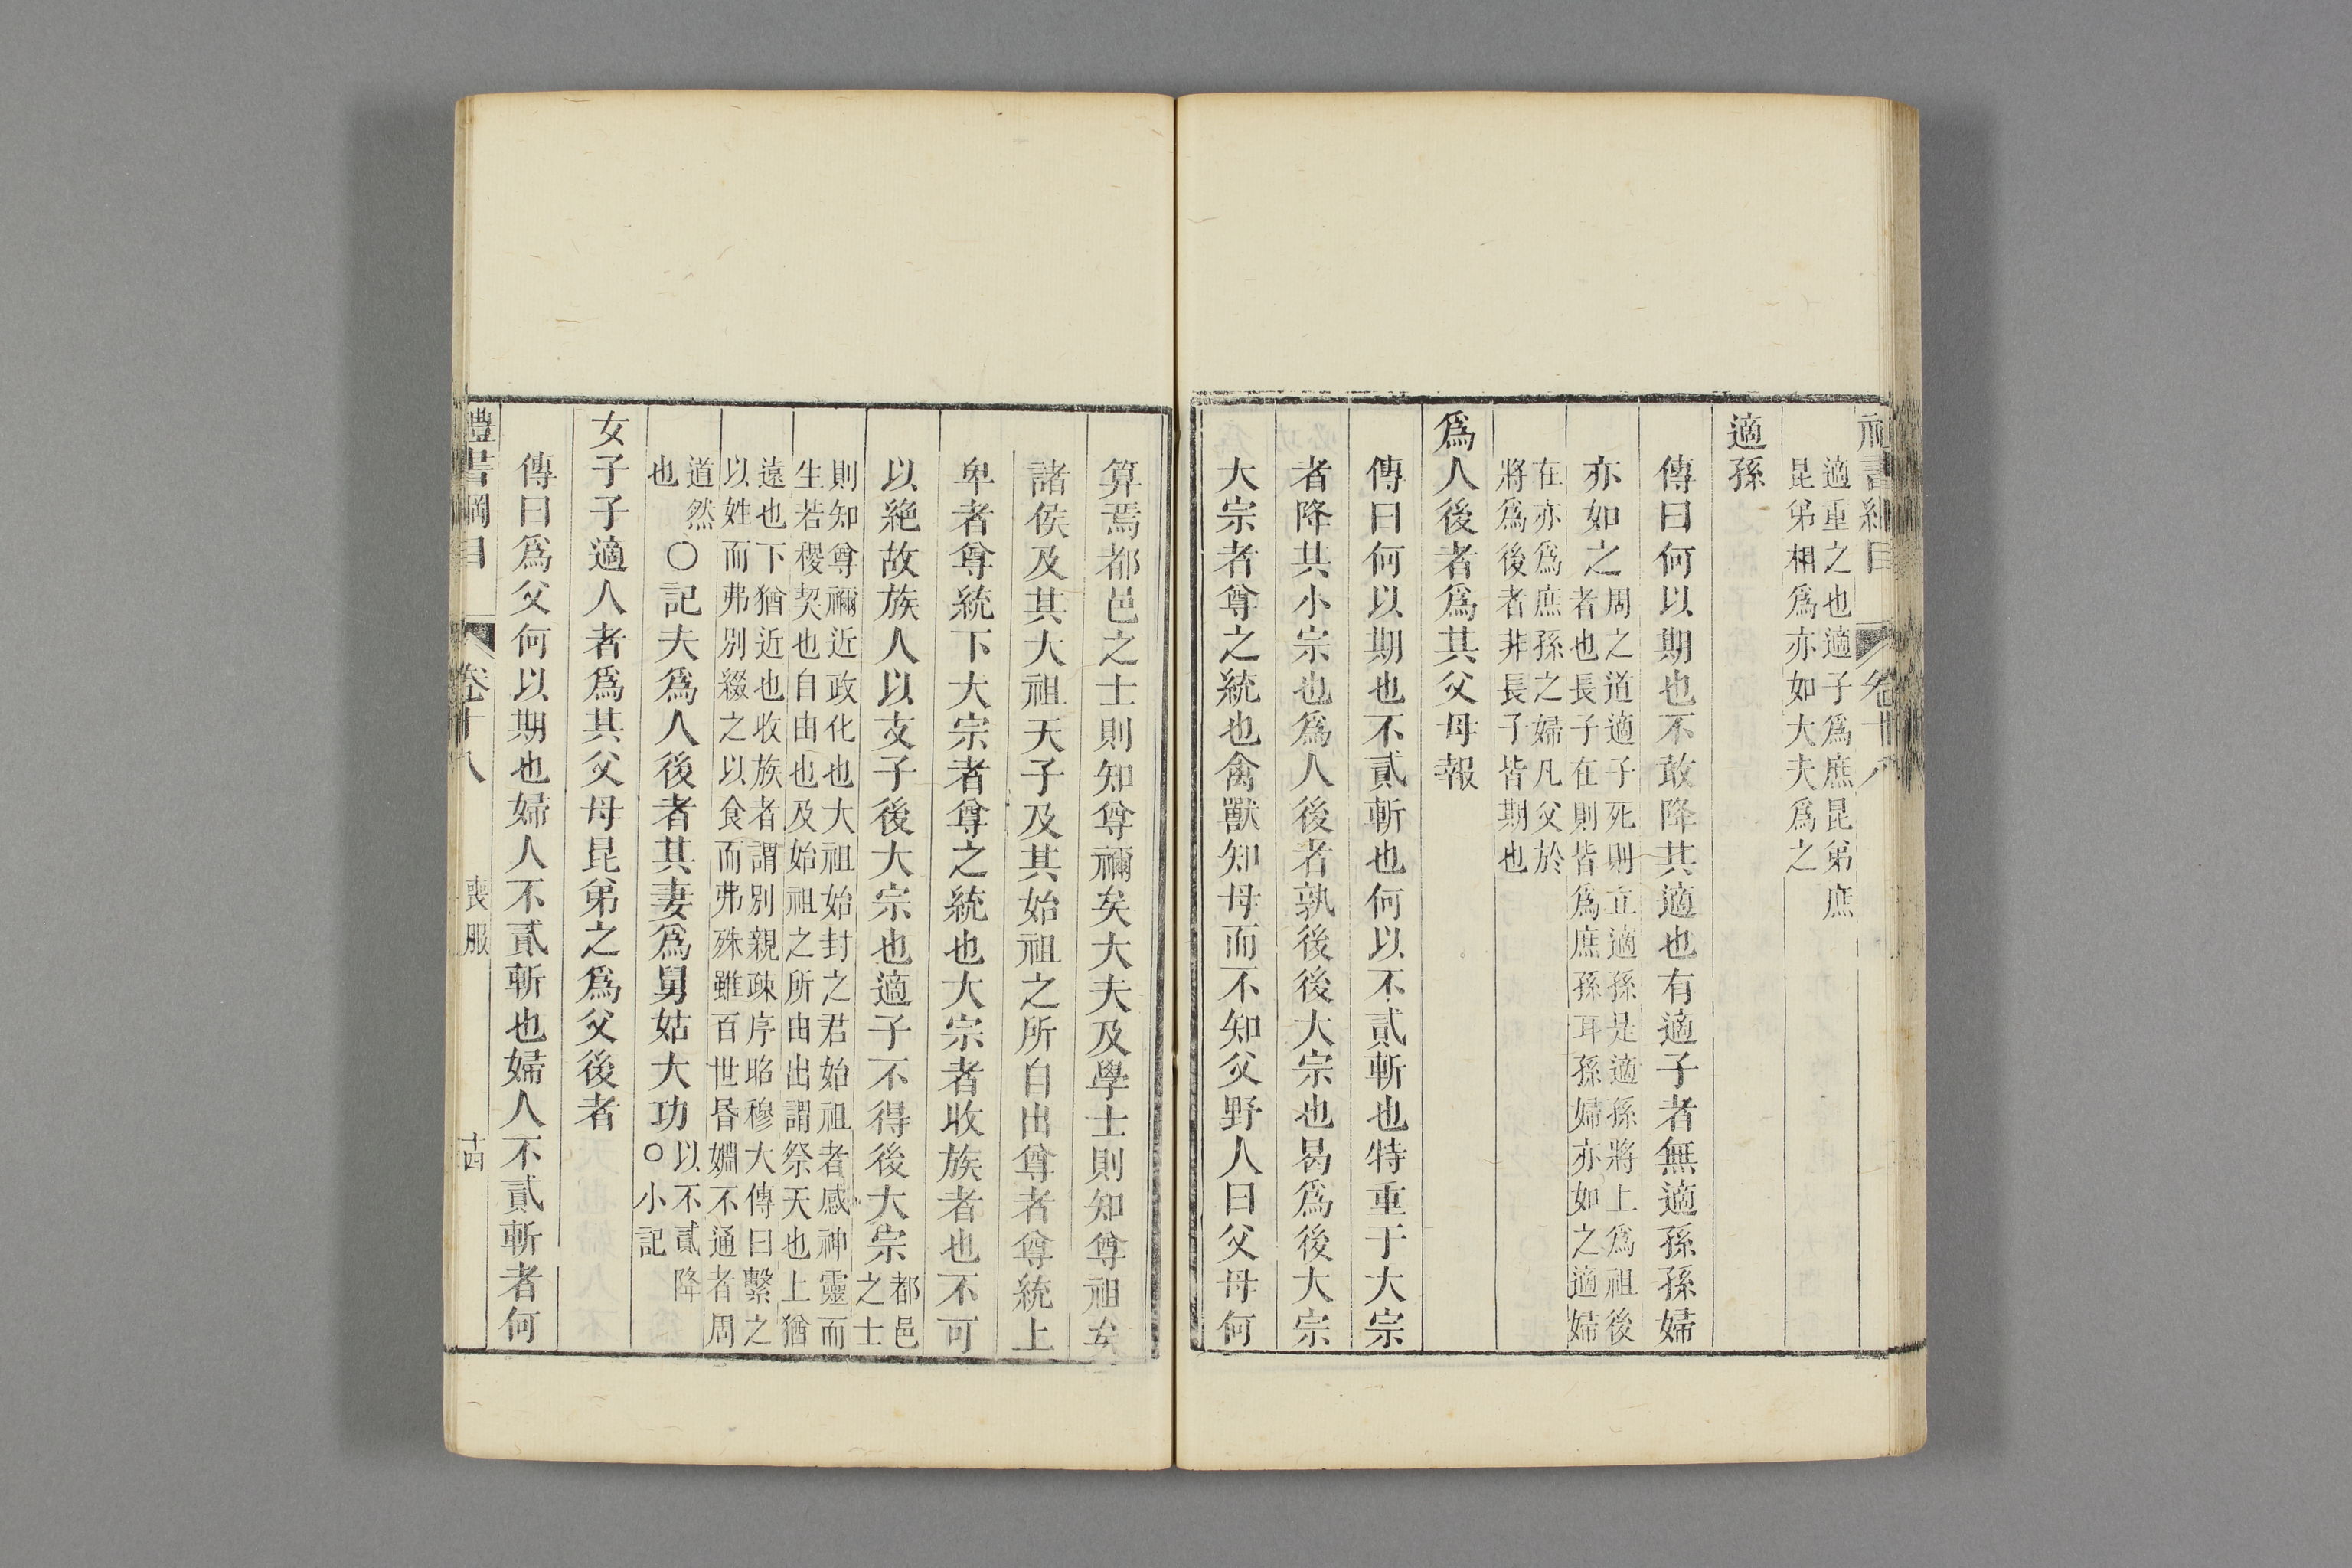 適重之也適子爲庶昆弟庶
昆弟相爲亦如大夫爲之
適孫
傳曰何以期也不敢降其適也有適子者無適孫孫婦
亦如之周之道適子死則立適孫是適孫將上爲祖後
者也長子在則皆爲庶孫耳孫婦亦如之適婦
在亦爲庶孫之婦凡父於
將爲後者非長子皆期也
爲人後者爲其父母報
傳曰何以期也不貳斬也何以不貳斬也特重于大宗
者降其小宗也爲人後者孰後後大宗也曷爲後大宗
大宗者尊之統也禽獸知母而不知父野人曰父母何
算焉都邑之士則知尊禰矣大夫及學士則知尊祖矣
諸侯及其大祖天子及其始祖之所自出尊者尊統上
卑者尊統下大宗者尊之統也大宗者收族者也不可
以絶故族人以支子後大宗也適子不得後大宗都邑
之士
則知尊禰近政化也大祖始封之君始祖者感神靈而
生若稷契也自由也及始祖之所由出謂祭天也上猶
遠也下猶近也收族者謂別親疎序昭穆大傳曰繫之
以姓而弗別綴之以食而弗殊雖百世昏婣不通者周
道然
也○記夫爲人後者其妻爲舅姑大功以不貳降
○小記
女子子適人者爲其父母昆弟之爲父後者
傳曰爲父何以期也婦人不貳斬也婦人不貳斬者何
禮書綱目 卷十八 喪服 十四